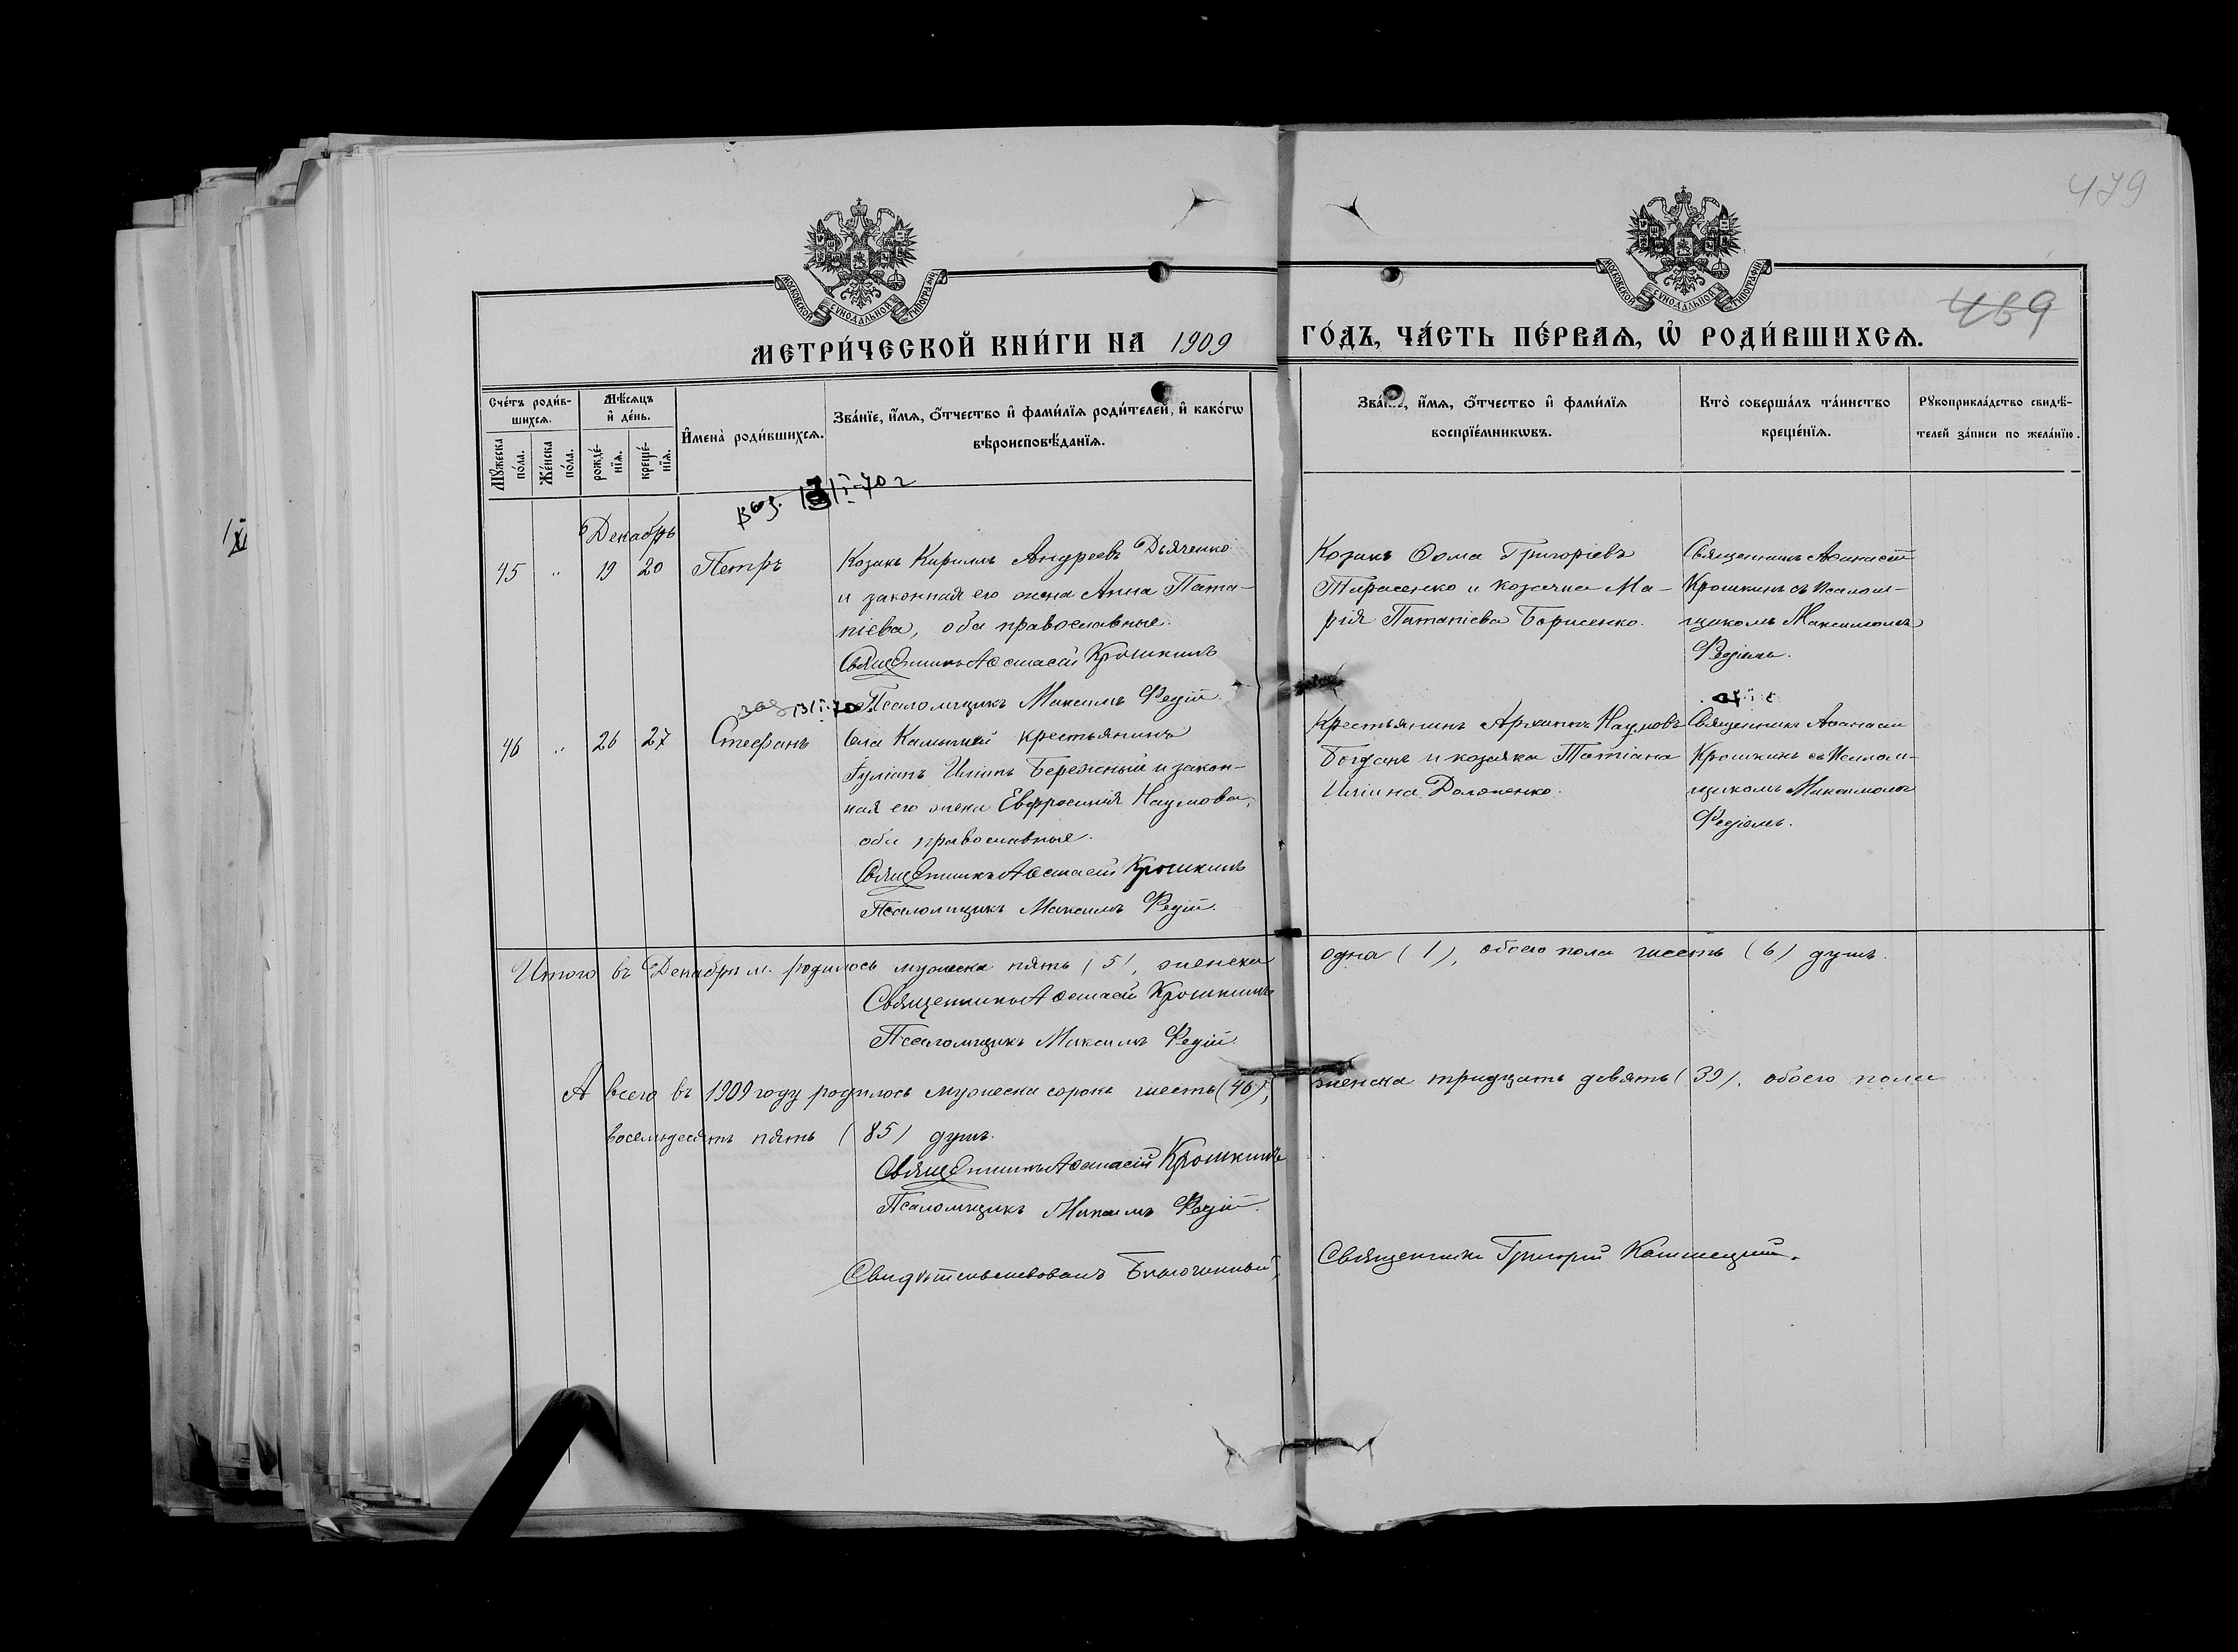 479
469
МОСКОВСКОЙ СѴНОДАЛЬНОЙ ТИПОГРАФІИ
МОСКОВСКОЙ СѴНОДАЛЬНОЙ ТИПОГРАФІИ
МЕТРИ́ЧЕСКОЙ КНИ́ГИ НА 1909 ГО́ДЪ, ЧА́СТЬ ПЕ́РВАѦ, Ѡ҆ РОДИ́ВШИХСѦ.
Сче́тъ роди́в-
шихсѧ.
Мѣ́сѧцъ
и҆ де́нь.
Мꙋ́жеска по́ла.
Же́нска по́ла.
рожде́-нїѧ.
креще́-нїѧ.
И҆мена̀ роди́вшихсѧ.
Зва́нїе, и҆́мѧ, ѻ҆́тчество и҆ фами́лїѧ роди́телей, и҆ како́гѡ
вѣроисповѣ́данїѧ.
Зва́нїе, и҆́мѧ, ѻ҆́тчество и҆ фами́лїѧ
воспрїе́мникѡвъ.
Кто̀ соверша́лъ та́инство
креще́нїѧ.
Рꙋкоприкла́дство свидѣ́-
телей за́писи по жела́нїю.
Декабрь
45 " 19 20 Петръ
Козакъ Кириллъ Андреевъ Дьяченко
и законная его жена Анна Пата-
піева, оба православные.
Священникъ Аѳанасій Крошкинъ
Псаломщикъ Максимъ Федій.
Козакъ Ѳома Григоріевъ
Тарасенко и козачка Ма-
рія Патапіева Борисенко.
Священникъ Аѳанасій
Крошкинъ съ Псалом-
щикомъ Максимомъ
Федіемъ.
46 " 26 27 Стефанъ
Села крестьянинъ
Іуліанъ Иліинъ Бережный и закон-
ная его жена Евфросинія Наумова,
оба православные.
Священникъ Аѳанасій Крошкинъ
Псаломщикъ Максимъ Федій.
Крестьянинъ Архиппъ Наумовъ
Богданъ и козачка Татіана
Иліина
Священникъ Аѳанасій
Крошкинъ съ Псалом-
щикомъ Максимомъ
Федіемъ.
Итого въ Декабрѣ м. родилось мужеска пять (5), женска одна (1), обоего пола шесть (6) душъ.
Священникъ Аѳанасій Крошкинъ
Псаломщикъ Максимъ Федій.
А всего въ 1909 году родилось мужеска сорокъ шесть (46), женска тридцать девять (39), обоего пола
восемьдесятъ пять (85) душъ.
Священникъ Аѳанасій Крошкинъ
Псаломщикъ Максимъ Федій.
Свидѣтельствовалъ Благочинный, Священникъ Григорій